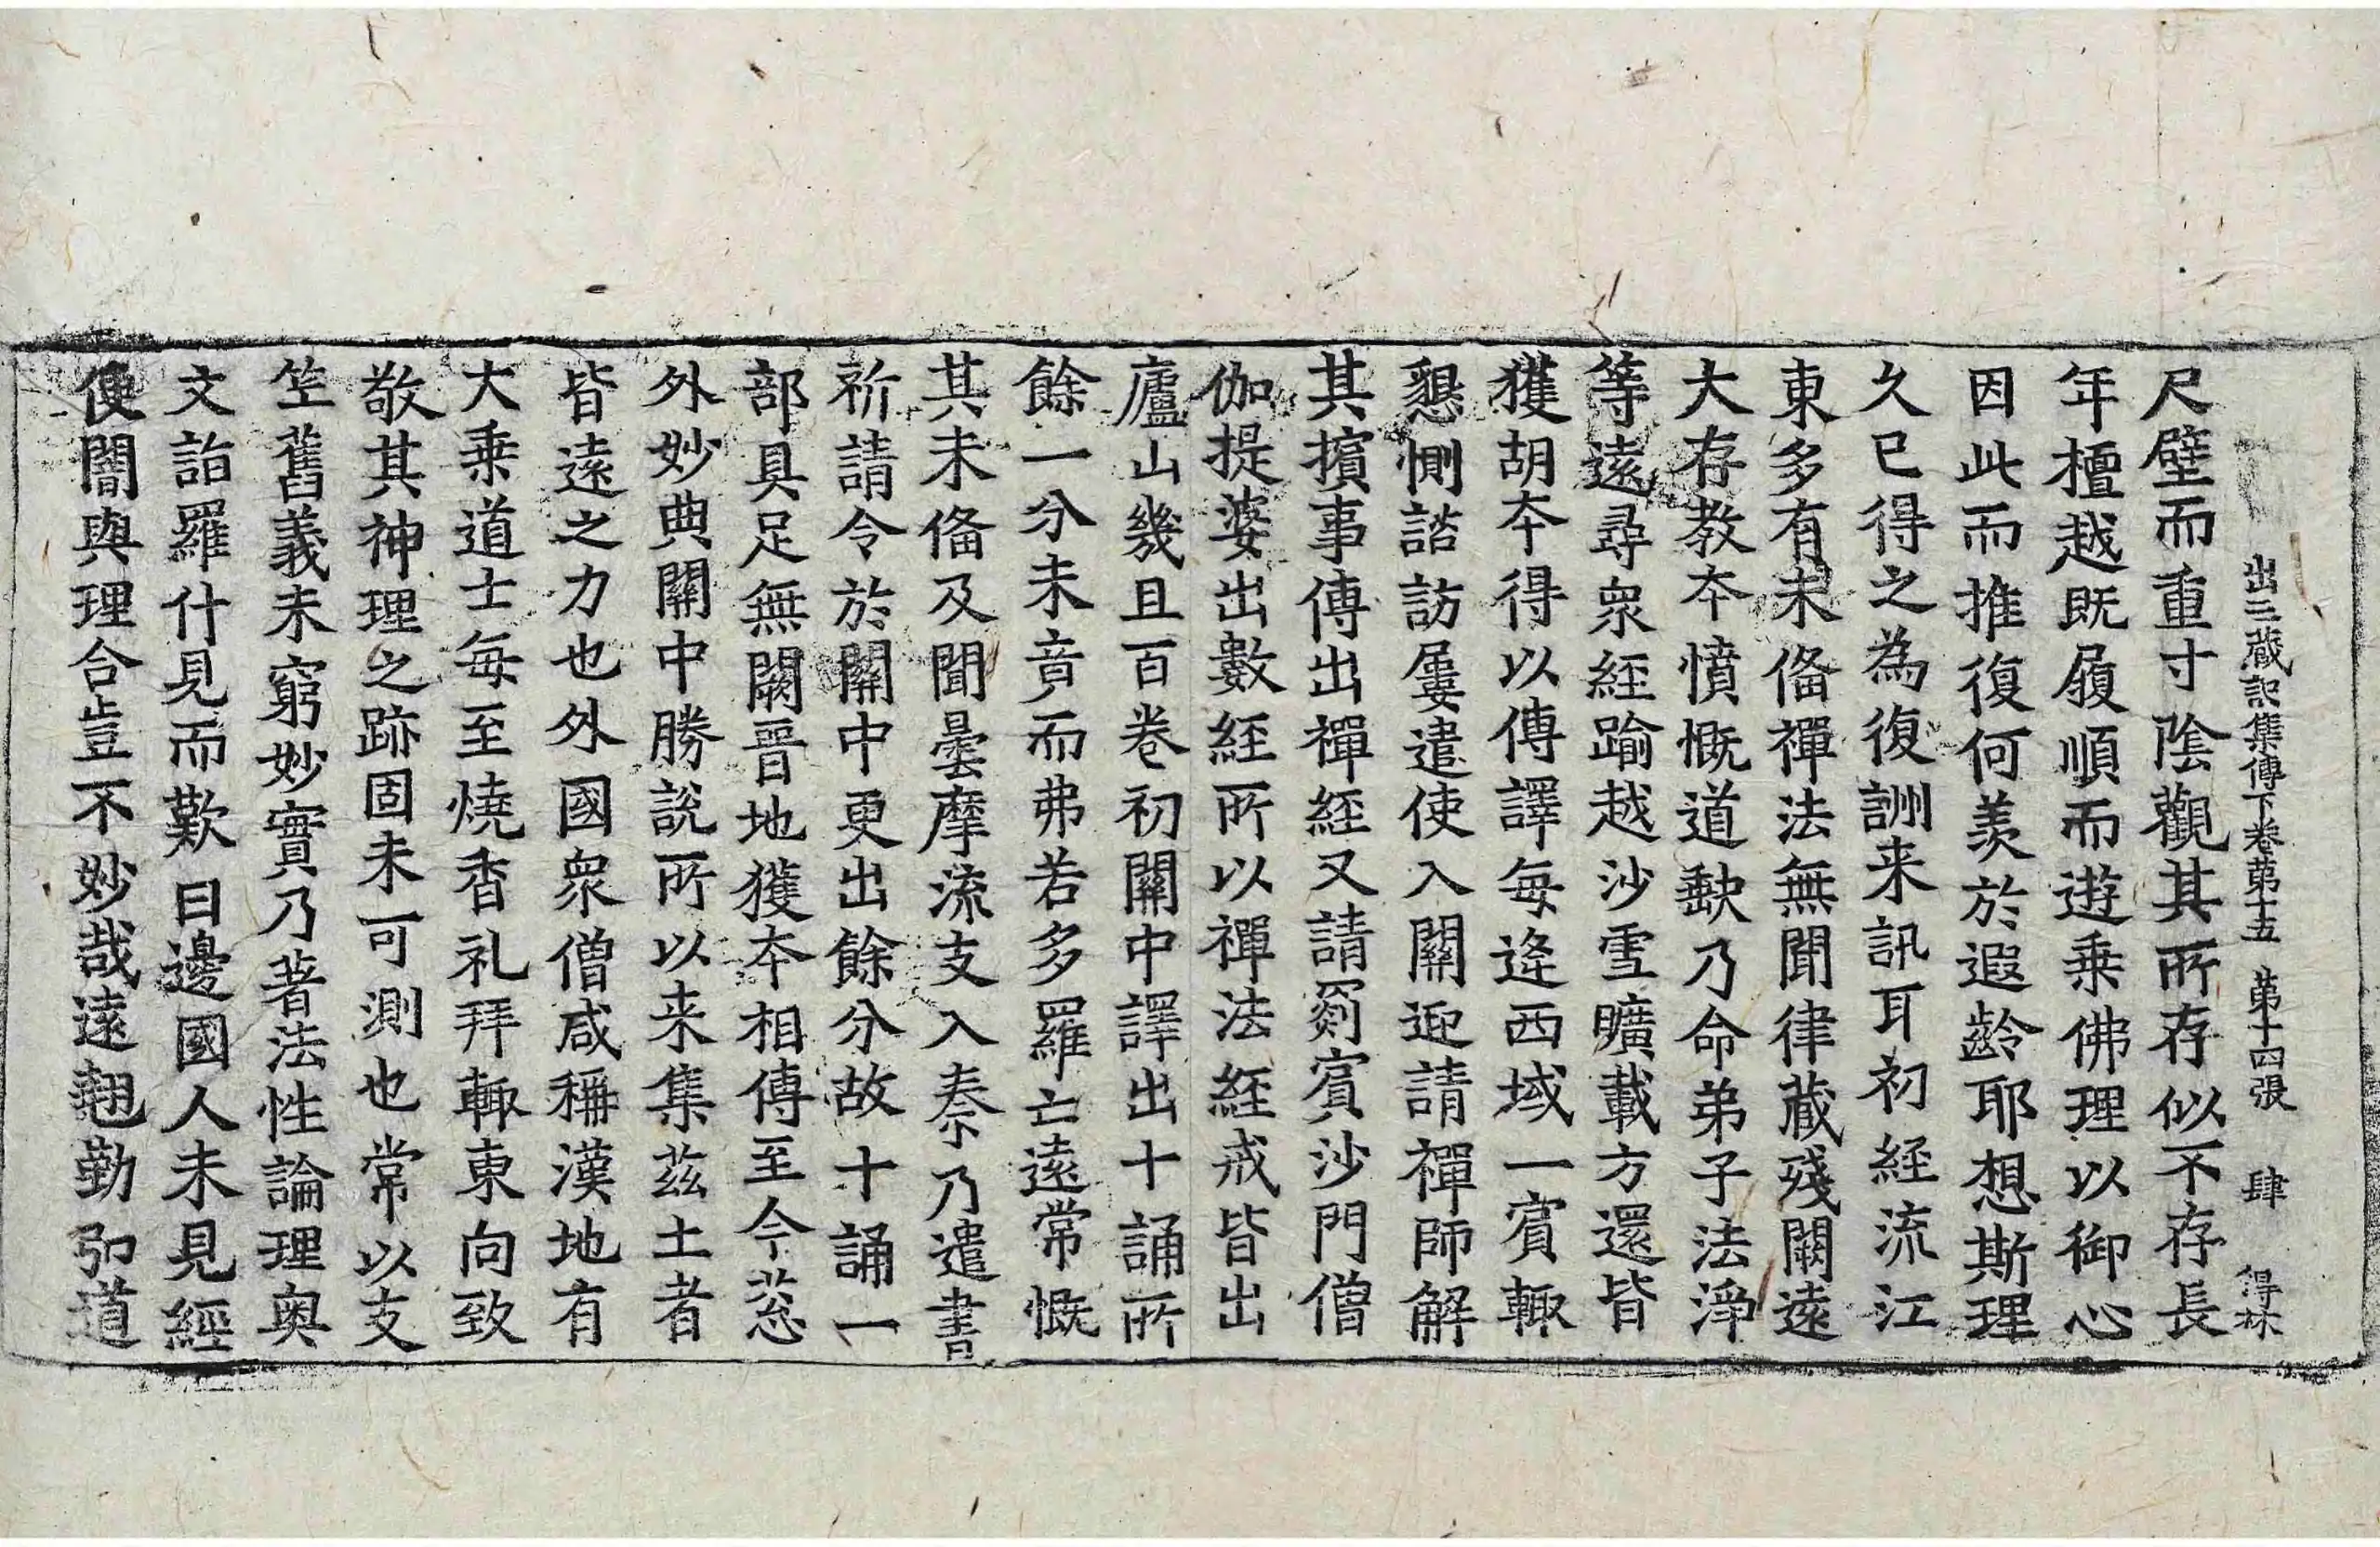 出三藏記集傳下卷第十五 第十四張 肆 得林
尺璧而重寸陰觀其所存似不存長
年檀越既履順而遊乗佛理以御心
因此而推復何羨於遐齡耶想斯理
久已得之為復訓来訊耳初經流江
東多有未俻禪法無聞律藏殘闕遠
大存教夲憤慨道缺乃命弟子法淨
等遠尋衆經踰越沙雪曠載方還皆
獲胡夲得以傳譯每逄西域一賓輙
懇惻諮訪屢遣使入關迎請禪師解
其擯事傳出禪經又請罽賓沙門僧
伽提婆出數經所以禪法經戒皆出
廬山幾且百卷初關中譯出十誦所
餘一分未竟而弗若多羅亡遠常慨
其未俻及聞曇摩流支入秦乃遣書
祈請令於關中更出餘分故十誦一
部具足無闕晉地獲夲相傳至今葱
外妙典關中勝說所以来集茲土者
皆遠之力也外國衆僧咸稱漢地有
大乗道士每至燒香礼拜輙東向致
敬其神理之跡固未可測也常以支
竺舊義未窮妙實乃著法性論理奥
文詣羅什見而歎曰邊國人未見經
便闇與理合豈不妙哉遠翹勤弘道